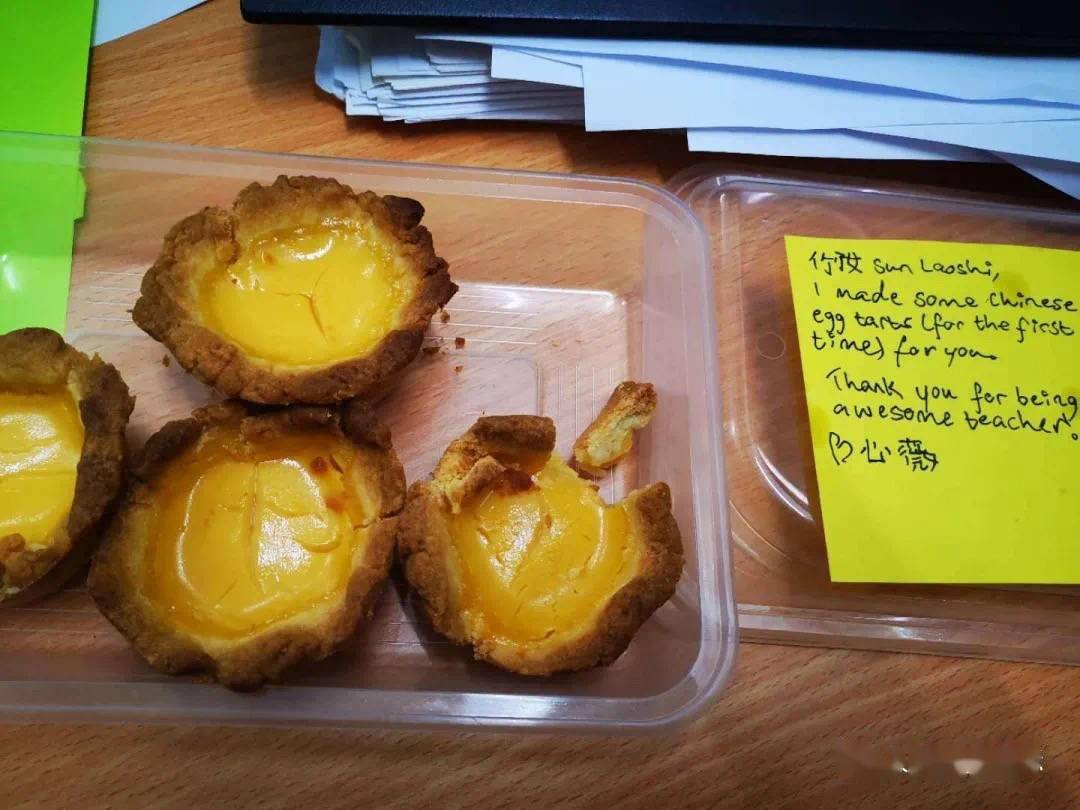 你好 Sun Laoshi,
I made some Chinese
egg tarts (for the first
time) for you.
Thank you for being
awesome teacher.
心薇